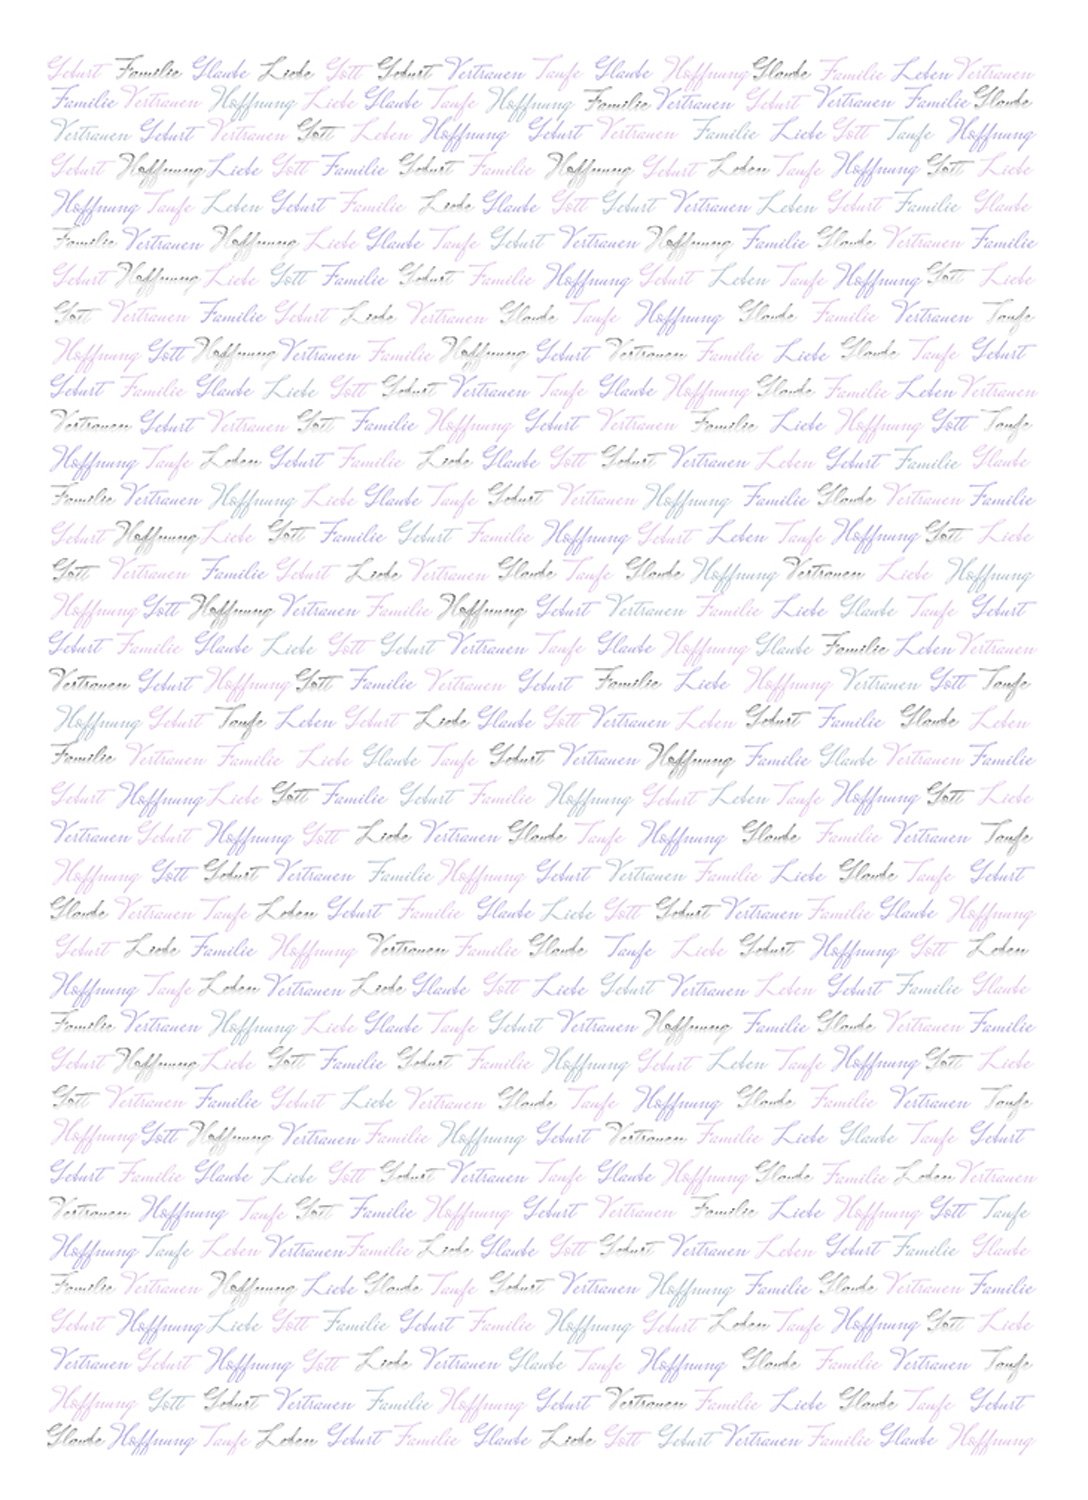 Geburt Familie Glaube Liebe Gott Geburt Vertrauen Taufe Glaube Hoffnung Glaube Familie Leben Vertrauen
Familie Vertrauen Hoffnung Liebe Glaube Taufe Hoffnung Familie Vertrauen Geburt Vertrauen Familie Glaube
Vertrauen Geburt Vertrauen Gott Leben Hoffnung Geburt Vertrauen Familie Liebe Gott Taufe Hoffnung
Geburt Hoffnung Liebe Gott Familie Geburt Familie Hoffnung Geburt Leben Taufe Hoffnung Gott Liebe
Hoffnung Taufe Leben Geburt Familie Liebe Glaube Gott Geburt Vertrauen Leben Geburt Familie Glaube
Familie Vertrauen Hoffnung Liebe Glaube Taufe Geburt Vertrauen Hoffnung Familie Glaube Vertrauen Familie
Geburt Hoffnung Liebe Gott Familie Geburt Familie Hoffnung Geburt Leben Taufe Hoffnung Gott Liebe
Gott Vertrauen Familie Geburt Liebe Vertrauen Glaube Taufe Hoffnung Glaube Familie Vertrauen Taufe
Hoffnung Gott Hoffnung Vertrauen Familie Hoffnung Geburt Vertrauen Familie Liebe Glaube Taufe Geburt
Geburt Familie Glaube Liebe Gott Geburt Vertrauen Taufe Glaube Hoffnung Glaube Familie Leben Vertrauen
Vertrauen Geburt Vertrauen Gott Familie Hoffnung Geburt Vertrauen Familie Liebe Hoffnung Gott Taufe
Hoffnung Taufe Leben Geburt Familie Liebe Glaube Gott Geburt Vertrauen Leben Geburt Familie Glaube
Familie Vertrauen Hoffnung Liebe Glaube Taufe Geburt Vertrauen Hoffnung Familie Glaube Vertrauen Familie
Geburt Hoffnung Liebe Gott Familie Geburt Familie Hoffnung Geburt Leben Taufe Hoffnung Gott Liebe
Gott Vertrauen Familie Geburt Liebe Vertrauen Glaube Taufe Glaube Hoffnung Vertrauen Liebe Hoffnung
Hoffnung Gott Hoffnung Vertrauen Familie Hoffnung Geburt Vertrauen Familie Liebe Glaube Taufe Geburt
Geburt Familie Glaube Liebe Gott Geburt Vertrauen Taufe Glaube Hoffnung Glaube Familie Leben Vertrauen
Vertrauen Geburt Hoffnung Gott Familie Vertrauen Geburt Familie Liebe Hoffnung Vertrauen Gott Taufe
Hoffnung Geburt Taufe Leben Geburt Liebe Glaube Gott Vertrauen Leben Geburt Familie Glaube Leben
Familie Vertrauen Familie Liebe Glaube Taufe Geburt Vertrauen Hoffnung Familie Glaube Vertrauen Familie
Geburt Hoffnung Liebe Gott Familie Geburt Familie Hoffnung Geburt Leben Taufe Hoffnung Gott Liebe
Vertrauen Geburt Hoffnung Gott Liebe Vertrauen Glaube Taufe Hoffnung Glaube Familie Vertrauen Taufe
Hoffnung Gott Geburt Vertrauen Familie Hoffnung Geburt Vertrauen Familie Liebe Glaube Taufe Geburt
Glaube Vertrauen Taufe Leben Geburt Familie Glaube Liebe Gott Geburt Vertrauen Familie Glaube Hoffnung
Geburt Liebe Familie Hoffnung Vertrauen Familie Glaube Taufe Liebe Geburt Hoffnung Gott Leben
Hoffnung Taufe Leben Vertrauen Liebe Glaube Gott Liebe Geburt Vertrauen Leben Geburt Familie Glaube
Familie Vertrauen Hoffnung Liebe Glaube Taufe Geburt Vertrauen Hoffnung Familie Glaube Vertrauen Familie
Geburt Hoffnung Liebe Gott Familie Geburt Familie Hoffnung Geburt Leben Taufe Hoffnung Gott Liebe
Gott Vertrauen Familie Geburt Liebe Vertrauen Glaube Taufe Hoffnung Glaube Familie Vertrauen Taufe
Hoffnung Gott Hoffnung Vertrauen Familie Hoffnung Geburt Vertrauen Familie Liebe Glaube Taufe Geburt
Geburt Familie Glaube Liebe Gott Geburt Vertrauen Taufe Glaube Hoffnung Glaube Familie Leben Vertrauen
Vertrauen Hoffnung Taufe Gott Familie Hoffnung Geburt Vertrauen Familie Liebe Hoffnung Gott Taufe
Hoffnung Taufe Leben Vertrauen Familie Liebe Glaube Gott Geburt Vertrauen Leben Geburt Familie Glaube
Familie Vertrauen Hoffnung Liebe Glaube Taufe Geburt Vertrauen Hoffnung Familie Glaube Vertrauen Familie
Geburt Hoffnung Liebe Gott Familie Geburt Familie Hoffnung Geburt Leben Taufe Hoffnung Gott Liebe
Vertrauen Geburt Hoffnung Gott Liebe Vertrauen Glaube Taufe Hoffnung Glaube Familie Vertrauen Taufe
Hoffnung Gott Geburt Vertrauen Familie Hoffnung Geburt Vertrauen Familie Liebe Glaube Taufe Geburt
Glaube Hoffnung Taufe Leben Geburt Familie Glaube Liebe Gott Geburt Vertrauen Familie Glaube Hoffnung